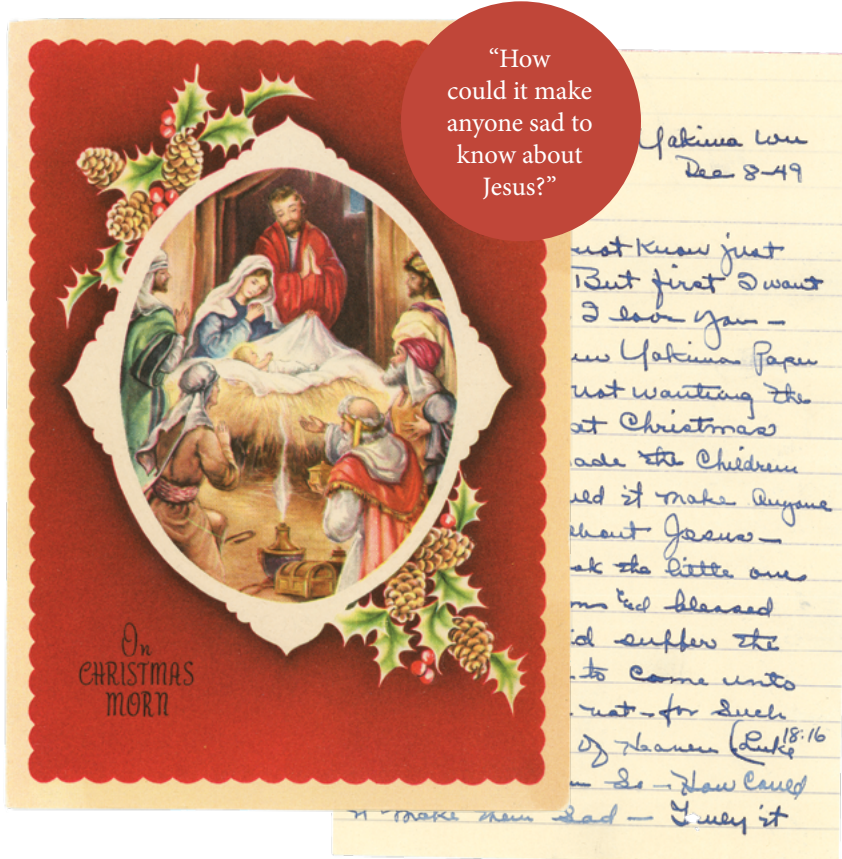 “How
could it make
anyone sad to
know about
Jesus?”
On
CHRISTMAS
MORN
Yakima Wn
Dec 8-49
not Know just
But first I want
I love you –
Yakima Paper
not wanting the
at Christmas
ade the Children
uld it make anyone
about Jesus –
the little ones
blessed
id suffer the
to come unto
not – for Such
of Heaven (Luke 18:16
So – How Could
it make them Sad – Truley it